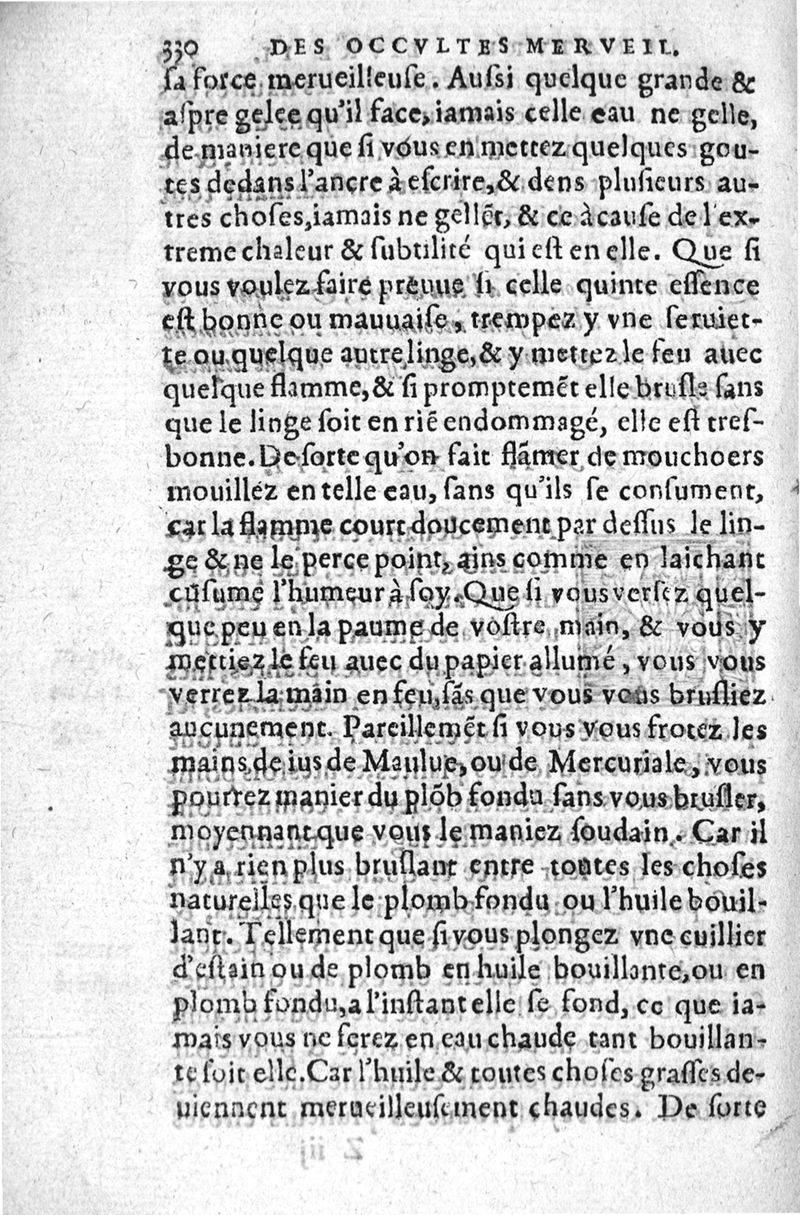 330 DES OCCVLTES MERVEIL.
ſa force merueilleuſe. Auſsi quelque grande &
aſpre gelee qu'il face, iamais celle eau ne gelle,
de maniere que ſi vous en mettez quelques gou-
tes dedans l'ancre à eſcrire, & dens pluſieurs au-
tres choſes, iamais ne gellēt, & ce à cauſe de l'ex-
treme chaleur & ſubtilité qui eſt en elle. Que ſi
vous voulez faire preuue ſi celle quinte eſſence
eſt bonne ou mauuaiſe, trempez y vne ſeruiet-
te ou quelque autre linge, & y mettez le feu auec
quelque flamme, & ſi promptemēt elle bruſle ſans
que le linge ſoit en riē endommagé, elle eſt treſ-
bonne. De ſorte qu'on fait flāmer de mouchoers
mouillez en telle eau, ſans qu'ils ſe conſument,
car la flamme court doucement par deſſus le lin-
ge & ne le perce point, ains comme en laichant
cūſume l'humeur à ſoy. Que ſi vous verſez quel-
que peu en la paume de voſtre main, & vous y
mettiez le feu auec du papier allumé, vous vous
verrez la main en feu, ſās que vous vous bruſliez
aucunement. Pareillemēt ſi vous vous frotez les
mains de ius de Maulue, ou de Mercuriale, vous
pourrez manier du plōb fondu ſans vous bruſler,
moyennant que vous le maniez ſoudain. Car il
n'y a rien plus bruſlant entre toutes les choſes
naturelles que le plomb fondu ou l'huile bouil-
lant. Tellement que ſi vous plongez vne cuillier
d'eſtain ou de plomb en huile bouillante, ou en
plomb fondu, a l'inſtant elle ſe fond, ce que ia-
mais vous ne ferez en eau chaude tant bouillan-
te ſoit elle. Car l'huile & toutes choſes graſſes de-
uiennent merueilleuſement chaudes. De ſorte